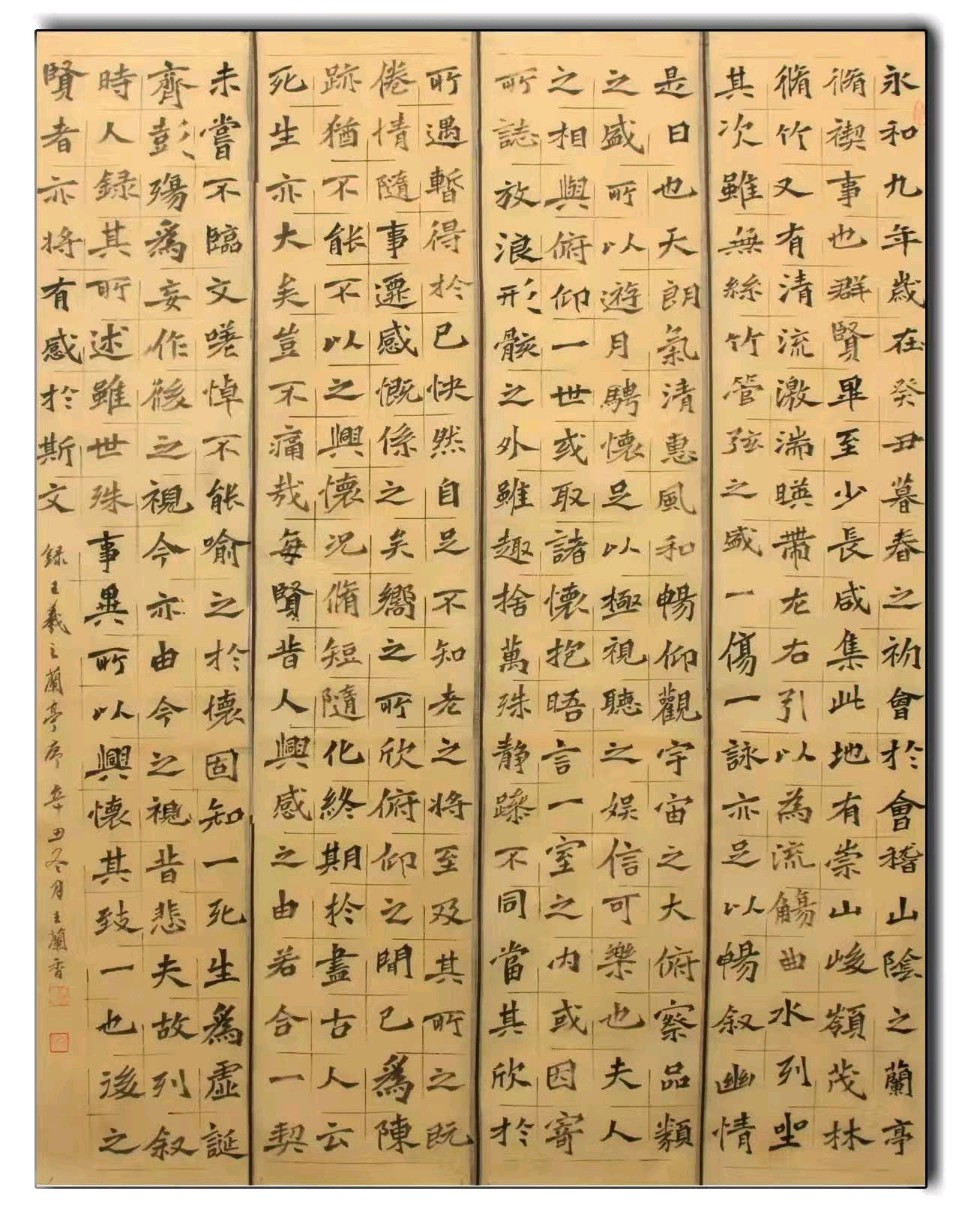 永和九年歲在癸丑暮春之初會於會稽山陰之蘭亭
脩禊事也群賢畢至少長咸集此地有崇山峻嶺茂林
脩竹又有清流激湍暎帶左右引以為流觴曲水列坐
其次雖無絲竹管弦之盛一傷一詠亦足以暢叙幽情
是日也天朗氣清惠風和暢仰觀宇宙之大俯察品類
之盛所以遊月騁懷足以極視聽之娛信可樂也夫人
之相與俯仰一世或取諸懷抱晤言一室之內或因寄
所誌放浪形骸之外雖趣捨萬殊静躁不同當其欣於
所遇暫得於己怏然自足不知老之將至及其所之既
倦情隨事遷感慨係之矣嚮之所欣俯仰之間已為陳
跡猶不能不以之興懷況脩短隨化終期於盡古人云
死生亦大矣豈不痛哉每賢昔人興感之由若合一契
未嘗不臨文嗟悼不能喻之於懷固知一死生為虛誕
齊彭殤為妄作後之視今亦由今之視昔悲夫故列叙
時人録其所述雖世殊事異所以興懷其致一也後之
賢者亦將有感於斯文 録王羲之蘭亭序 辛丑冬月王蘭香